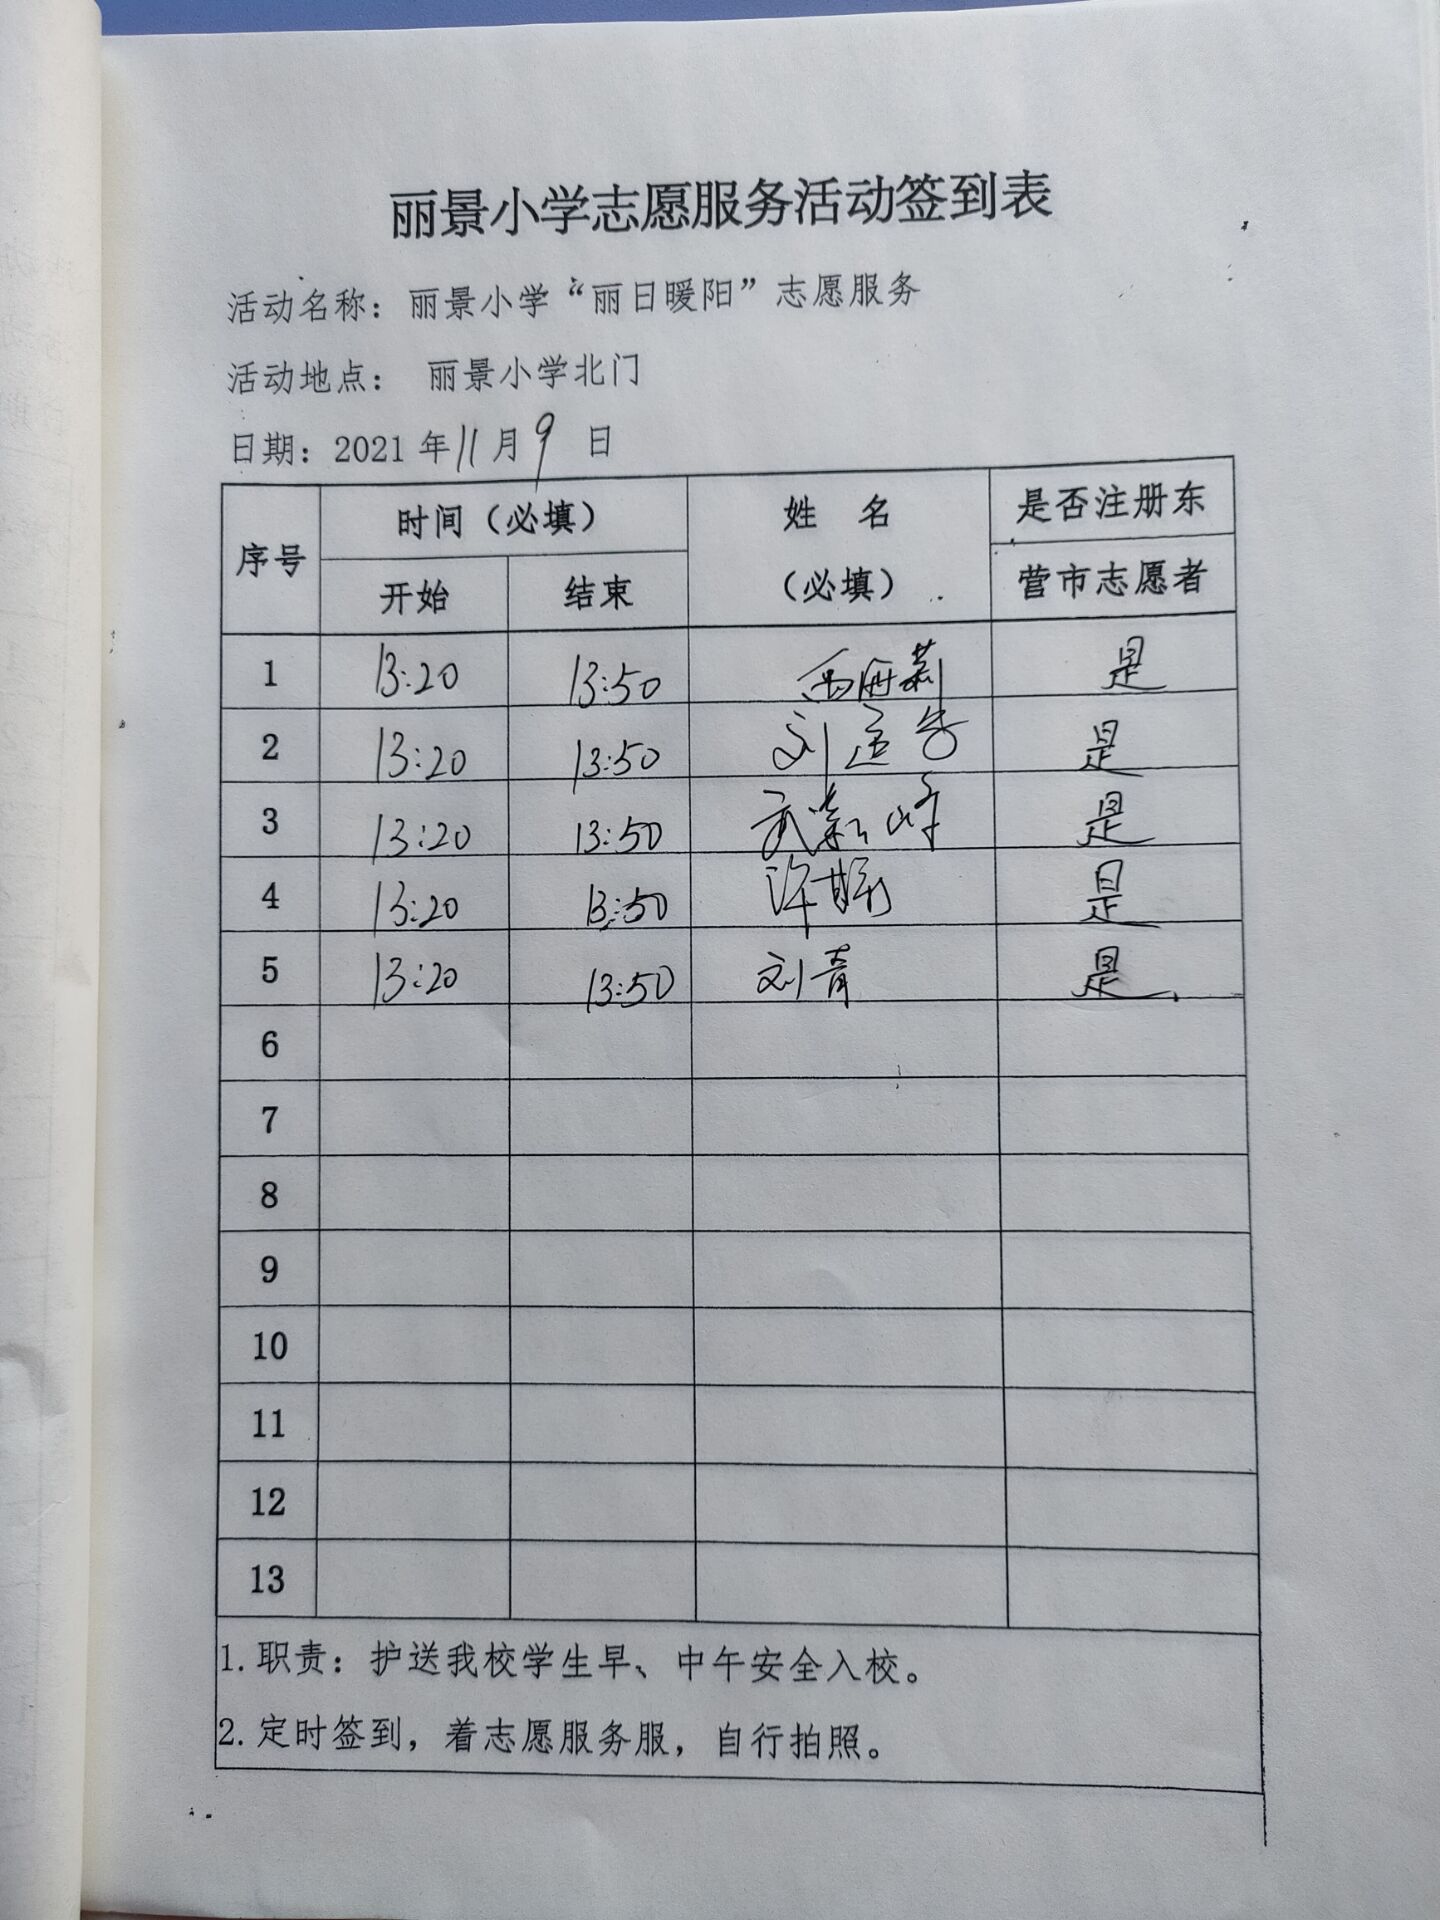 丽景小学志愿服务活动签到表
活动名称：丽景小学“丽日暖阳”志愿服务
活动地点： 丽景小学北门
日期：2021年11月9日
序号 时间（必填） 姓 名（必填） 是否注册东营市志愿者
开始 结束
1 13:20 13:50 是
2 13:20 13:50 刘 是
3 13:20 13:50 武 峰 是
4 13:20 13:50 许 是
5 13:20 13:50 刘青 是
6
7
8
9
10
11
12
13
1.职责：护送我校学生早、中午安全入校。
2.定时签到，着志愿服务服，自行拍照。